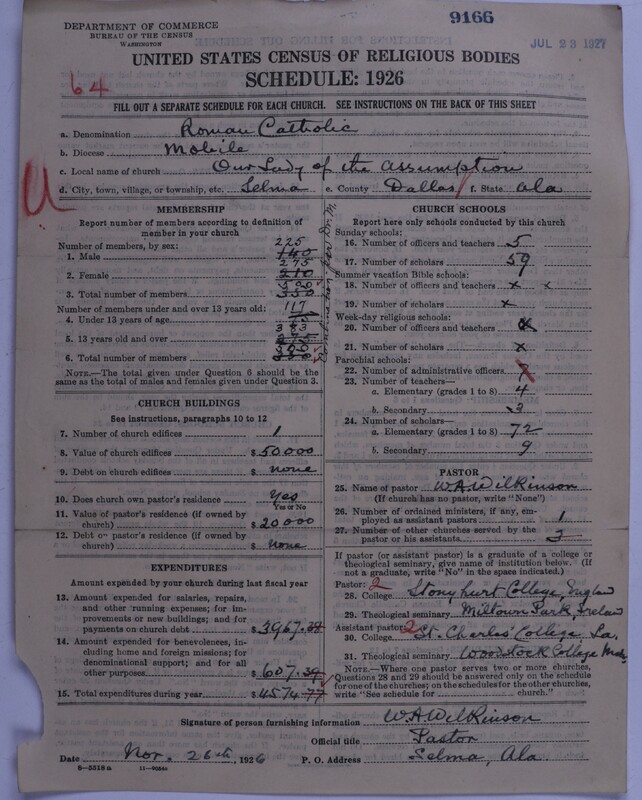 DEPARTMENT OF COMMERCE
BUREAU OF THE CENSUS
WASHINGTON
9166
JUL 23 1927
UNITED STATES CENSUS OF RELIGIOUS BODIES
SCHEDULE: 1926
64
FILL OUT A SEPARATE SCHEDULE FOR EACH CHURCH. SEE INSTRUCTIONS ON THE BACK OF THIS SHEET
a. Denomination Roman Catholic
b. Diocese Mobile
c. Local name of church Our Lady of the Assumption
d. City, town, village, or township, etc. Selma e. County Dallas f. State Ala
MEMBERSHIP
Report number of members according to definition of
member in your church
Number of members, by sex:
225
1. Male 140
275
2. Female 210
500
3. Total number of members 350
Number of members under and over 13 years old:
117
4. Under 13 years of age
383
5. 13 years old and over
500
6. Total number of members 350
NOTE.—The total given under Question 6 should be the
same as the total of males and females given under Question 3.
CHURCH BUILDINGS
See instructions, paragraphs 10 to 12
7. Number of church edifices 1
8. Value of church edifices $ 50000
9. Debt on church edifices $ none
10. Does church own pastor's residence Yes
Yes or No
11. Value of pastor's residence (if owned by
church) $ 20000
12. Debt on pastor's residence (if owned by
church) $ none
EXPENDITURES
Amount expended by your church during last fiscal year
13. Amount expended for salaries, repairs,
and other running expenses; for im-
provements or new buildings; and for
payments on church debt $ 3967.38
14. Amount expended for benevolences, in-
cluding home and foreign missions; for
denominational support; and for all
other purposes $ 607.39
15. Total expenditures during year $ 4574.77
CHURCH SCHOOLS
Report here only schools conducted by this church
Sunday schools:
16. Number of officers and teachers 5
17. Number of scholars 59
Summer vacation Bible schools:
18. Number of officers and teachers x x
19. Number of scholars x
Week-day religious schools:
20. Number of officers and teachers x
21. Number of scholars x
Parochial schools:
22. Number of administrative officers
23. Number of teachers—
a. Elementary (grades 1 to 8) 4
b. Secondary 3
24. Number of scholars—
a. Elementary (grades 1 to 8) 72
b. Secondary 9
PASTOR
25. Name of pastor W.A. Wilkinson
(If church has no pastor, write "None")
26. Number of ordained ministers, if any, em-
ployed as assistant pastors 1
27. Number of other churches served by the
pastor or his assistants 3
If pastor (or assistant pastor) is a graduate of a college or
theological seminary, give name of institution below. (If
not a graduate, write "No" in the space indicated.)
Pastor: 2
28. College Stonyhurst College, England
29. Theological seminary Milltown Park, Ireland
Assistant pastor: 2
30. College St. Charles College La.
31. Theological seminary Woodstock College
NOTE.—Where one pastor serves two or more churches,
Questions 28 and 29 should be answered only on the schedule
for one of the churches; on the schedules for the other churches,
write "See schedule for church."
Signature of person furnishing information W.A. Wilkinson
Official title Pastor
Date Nov. 26th, 1926 P. O. Address Selma, Ala.
8—5518a 11—9554a